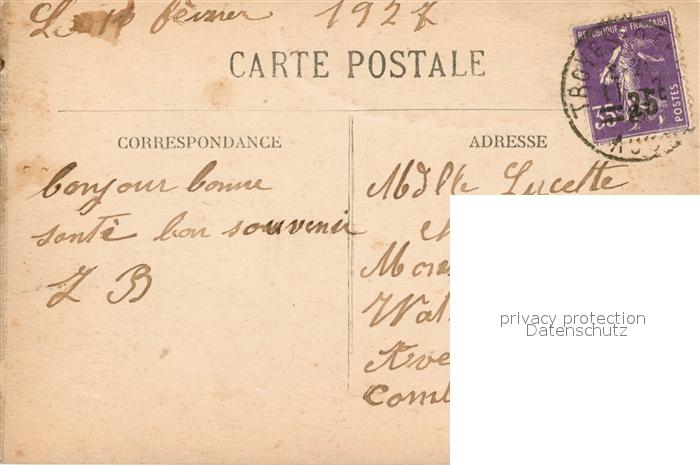 Le 11 février 1927
CARTE POSTALE
RÉPUBLIQUE FRANÇAISE
POSTES
35c
=25c
TROYES
CORRESPONDANCE
ADRESSE
bonjour bonne
santé bon souvenir
L B
Mdlle Lucette
et
privacy protection
Datenschutz